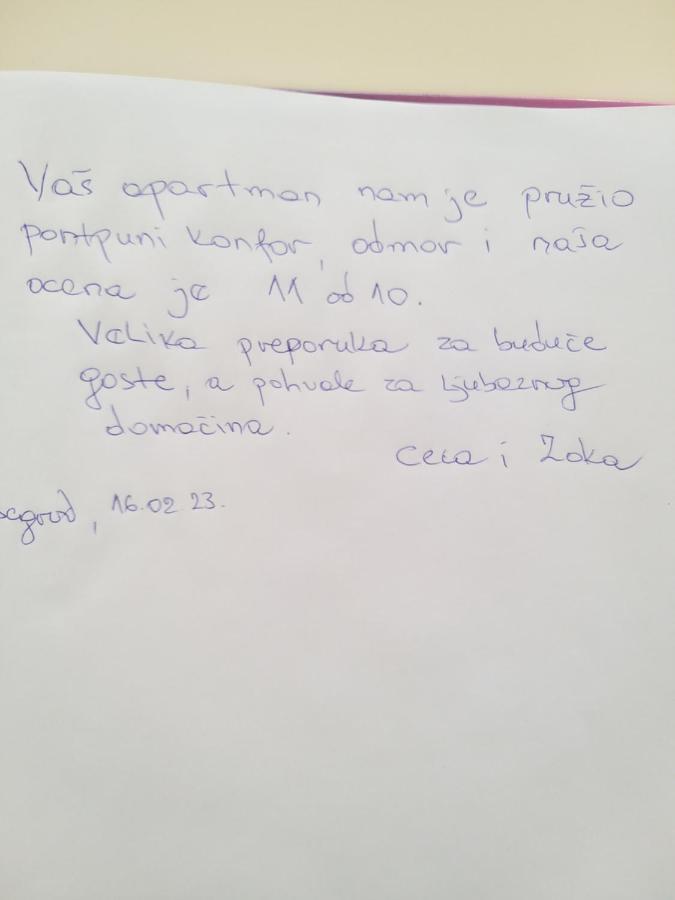 Vaš apartman nam je pružio
pontpuni konfor, odmor i naša
ocena je 11 od 10.
Velika preporuka za buduće
goste, a pohvale za ljubaznog
domaćina.
Ceca i Zoka
16.02 23.